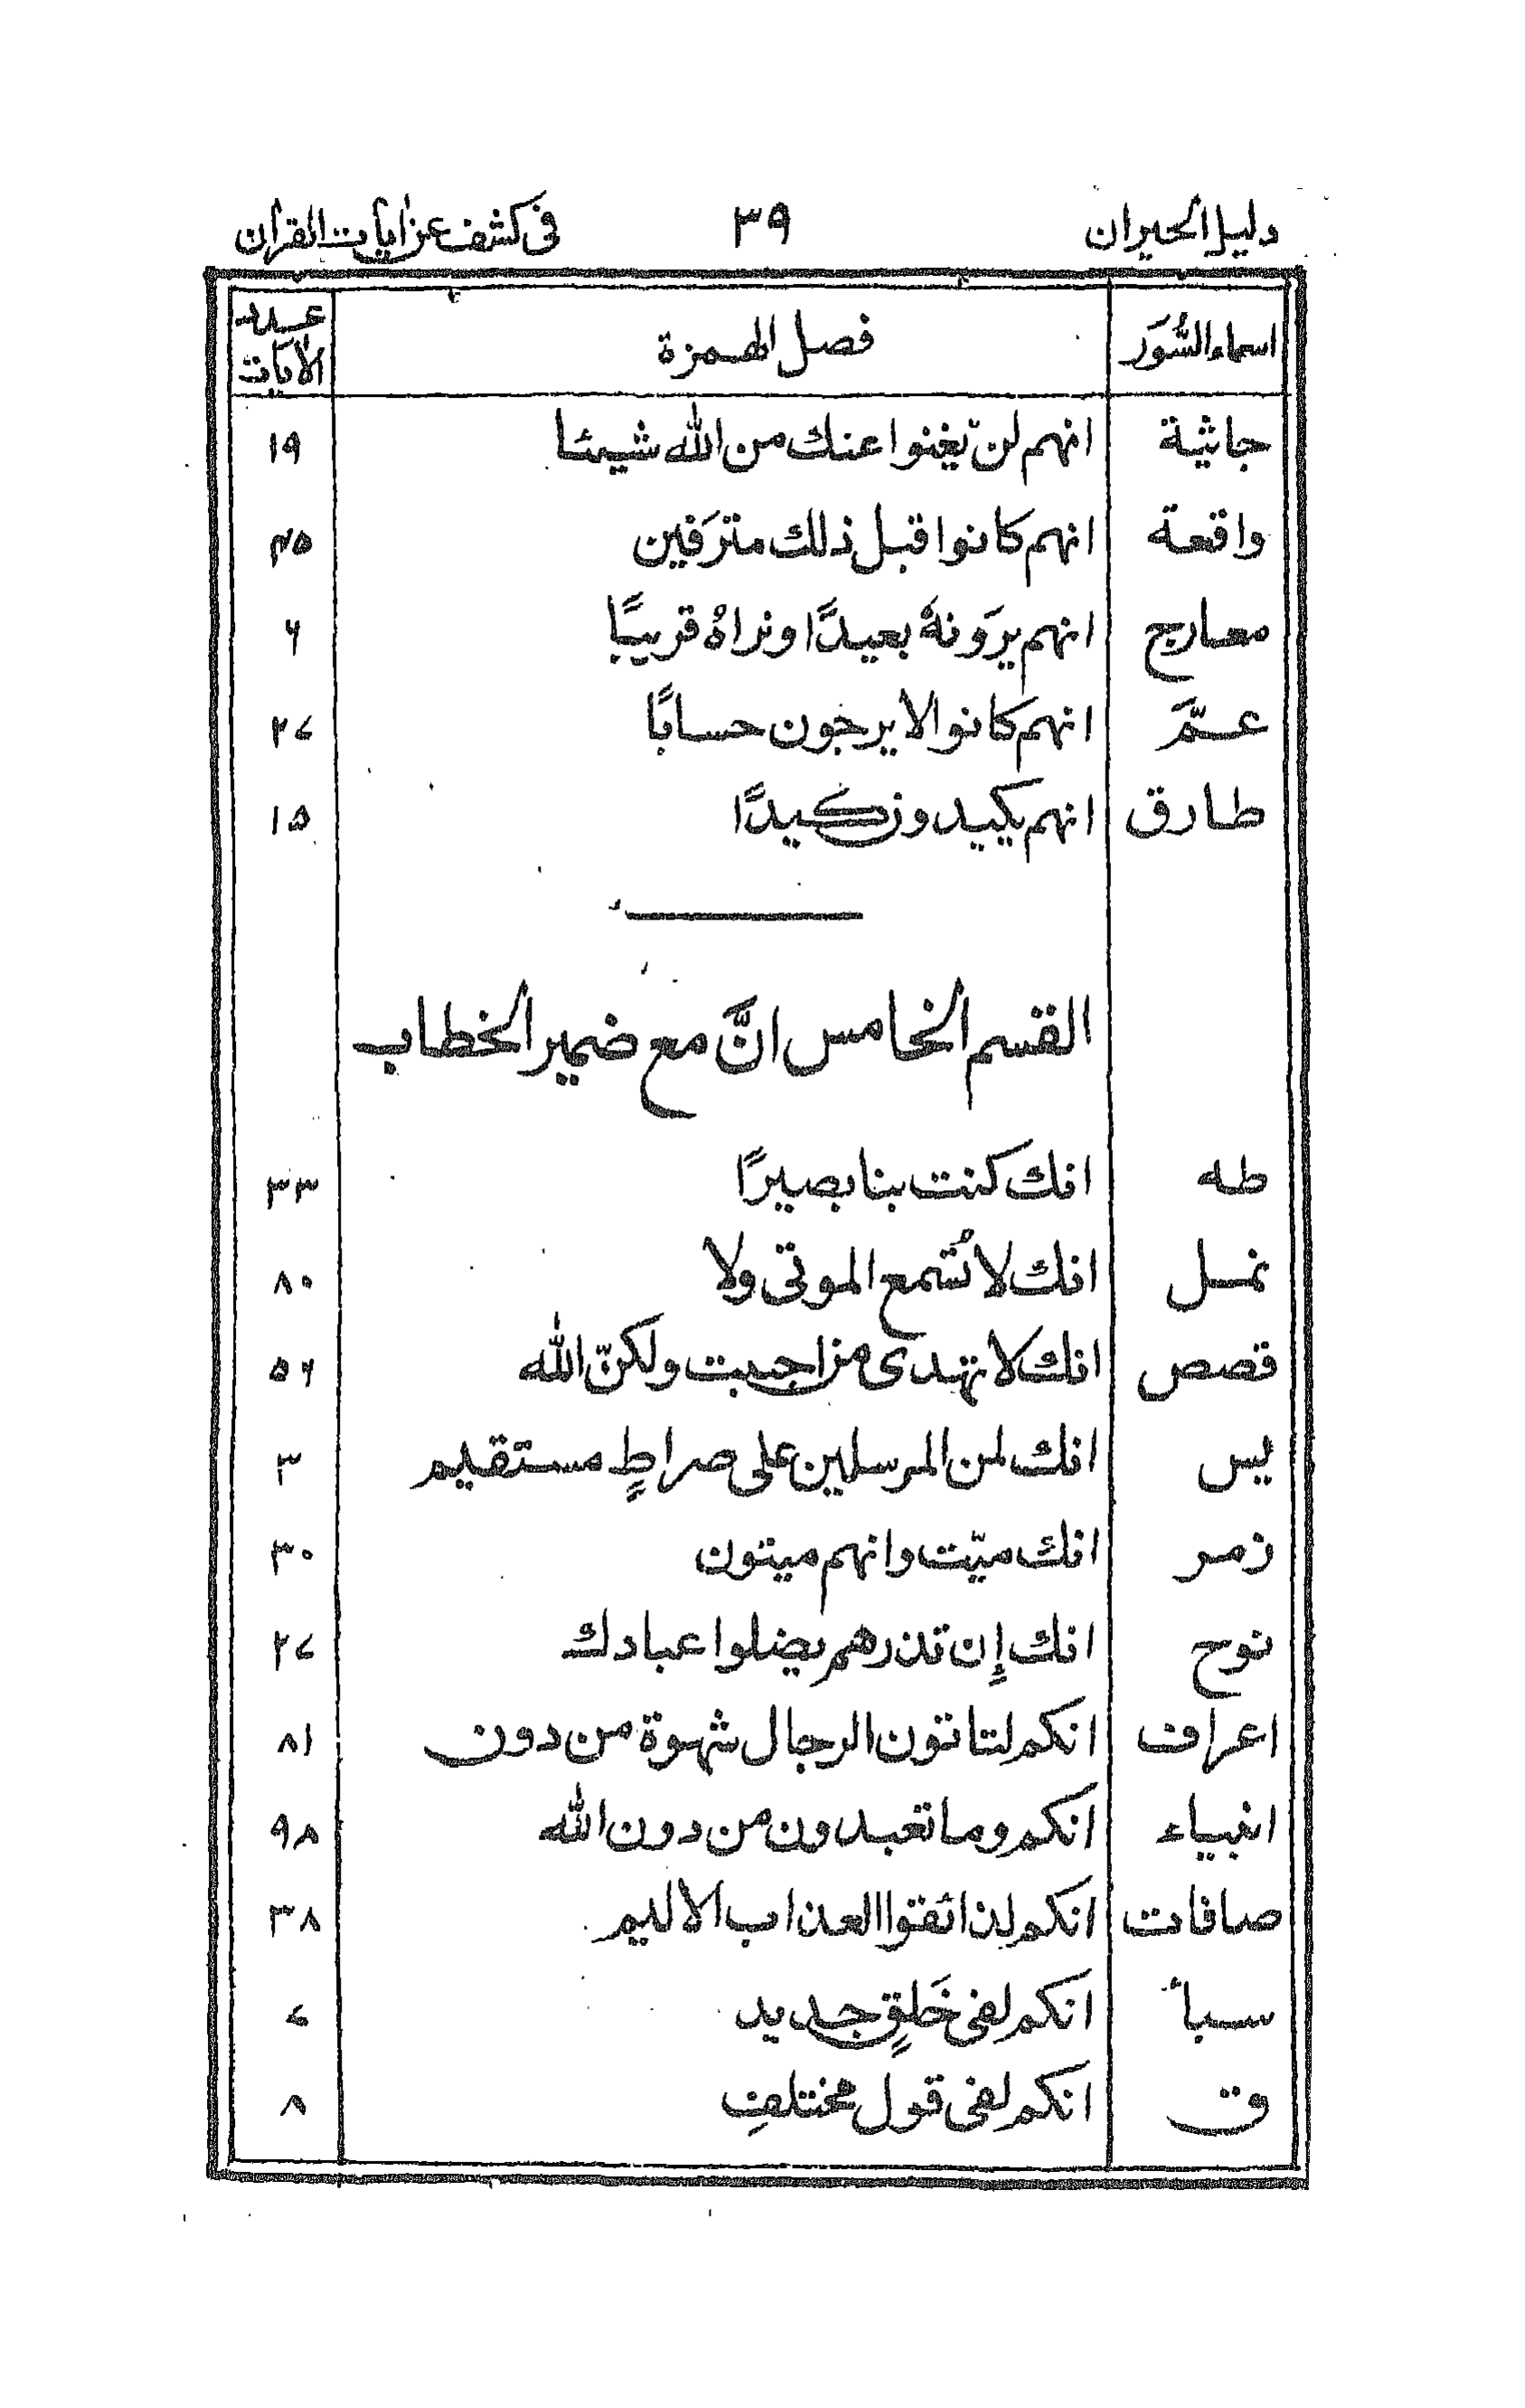 دليل الحيران ٣٩ فى كشف عن ايات القران
اسماء السُّوَر فصل الهمزة عدد الأيات
جاثية انهم لن يغنوا عنك من الله شيئا ١٩
واقعة انهم كانوا قبل ذلك مترَفين ٤٥
معارج انهم يرَونهٗ بعيدًا ونراهُ قريبًا ٦
عمّ انهم كانوا لا يرجون حسابًا ٢٧
طارق انهم يكيدون كيدًا ١٥
القسم الخامس انَّ مع ضمير الخطاب
طه انك كنت بنا بصيرًا ٣٣
نمل انك لا تُسمع الموتى ولا ٨٠
قصص انك لا تهدى من احببت ولكنّ الله ٥٦
يس انك لمن المرسلين على صراطٍ مستقيم ٣
زمر انك ميّت وانهم ميتون ٣٠
نوح انك إن تذرهم يضلوا عبادك ٢٧
اعراف انكم لتاتون الرجال شهوة من دون ٨١
انبياء انكم وما تعبدون من دون الله ٩٨
صافات انكم لذائقوا العذاب الاليم ٣٨
سبأ انكم لفى خَلقٍ جديد ٧
ق انكم لفى قول مختلفٍ ٨